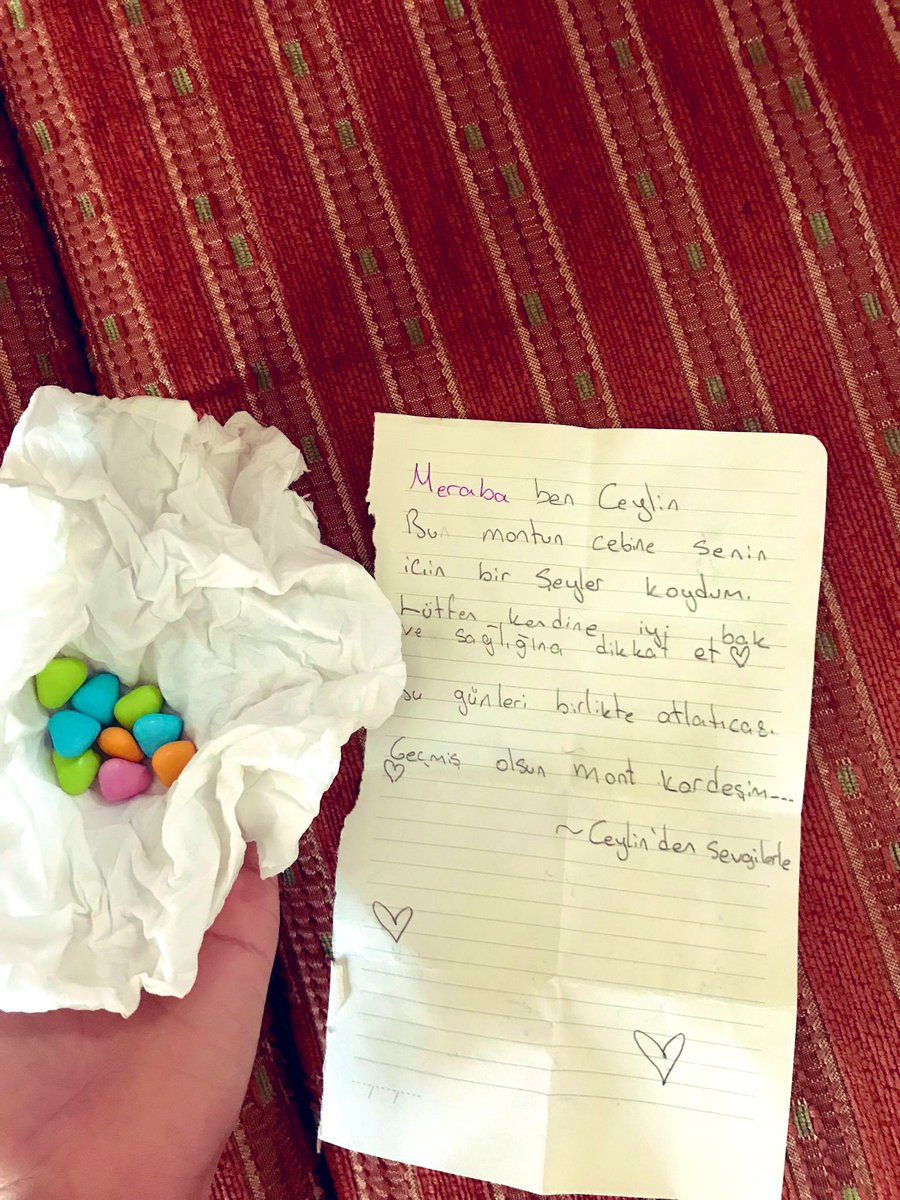 Meraba ben Ceylin
Bu montun cebine senin
için bir şeyler koydum.
Lütfen kendine iyi bak
ve sağlığına dikkat et
bu günleri birlikte atlatıcaz.
Geçmiş olsun mont kardeşim...
~Ceylin'den sevgilerle